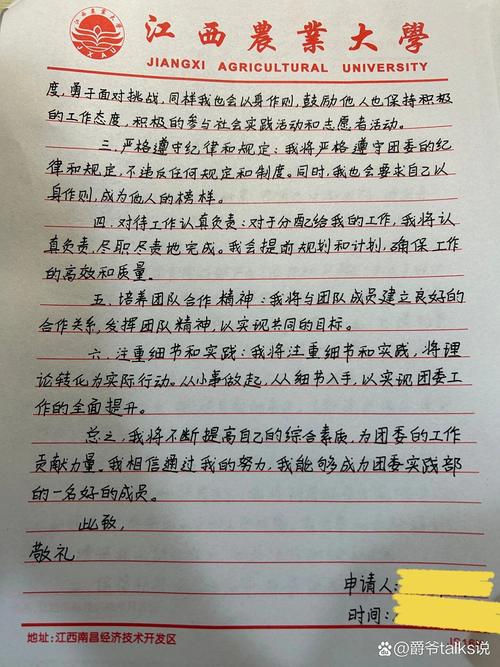 江西農業大學
JXAU
JIANGXI AGRICULTURAL UNIVERSITY
度,勇于面对挑战,同样我也会以身作则,鼓励他人也保持积极
的工作态度,积极的参与社会实践活动和志愿者活动。
三、严格遵守纪律和规定:我将严格遵守团委的纪
律和规定,不违反任何规定和制度。同时,我也会要求自己以
身作则,成为他人的榜样。
四、对待工作认真负责:对于分配给我的工作,我将认
真负责,尽职尽责地完成。我会提前规划和计划,确保工作
的高效和质量。
五、培养团队合作精神:我将与团队成员建立良好的
合作关系,发挥团队精神,以实现共同的目标。
六、注重细节和实践:我将注重细节和实践,将理
论转化为实际行动。从小事做起,从细节入手,以实现团委工
作的全面提升。
总之,我将不断提高自己的综合素质,为团委的工作
贡献力量。我相信通过我的努力,我能够成为团委实践部
的一名好的成员。
此致,
敬礼
申请人:
时间:
地址:江西南昌经济技术开发区
@爵爷talks说